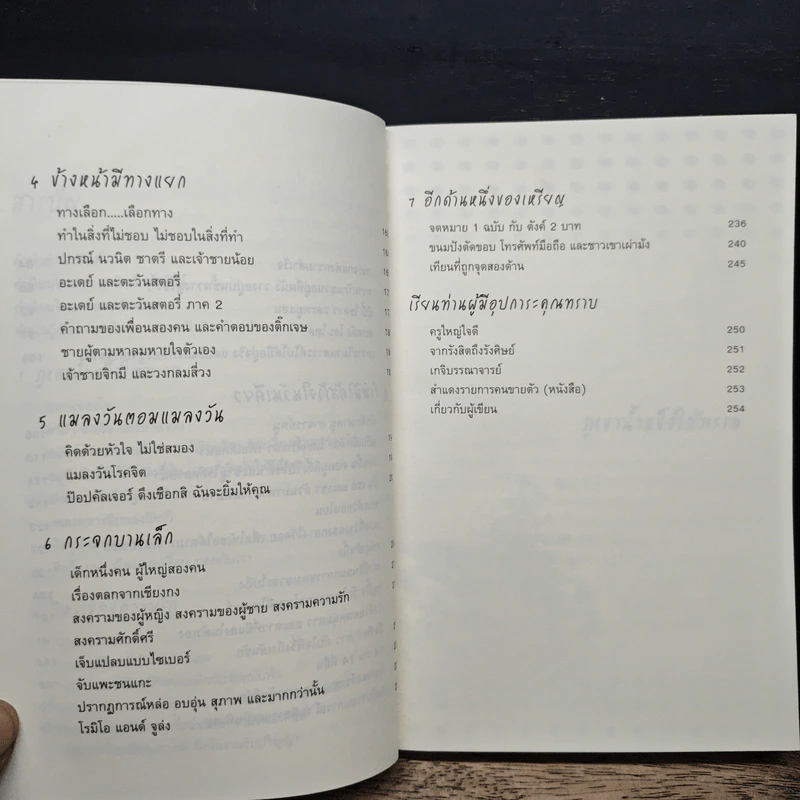 4 ข้างหน้ามีทางแยก
ทางเลือก.....เลือกทาง
ทำในสิ่งที่ไม่ชอบ ไม่ชอบในสิ่งที่ทำ
ปกรณ์ นวนิต ชาตรี และเจ้าชายน้อย
อะเดย์ และตะวันสตอรี่
อะเดย์ และตะวันสตอรี่ ภาค 2
คำถามของเพื่อนสองคน และคำตอบของติ๊กเจษ
ชายผู้ตามหาลมหายใจตัวเอง
เจ้าชายจิกมี และวงกลมสี่วง
5 แมลงวันตอมแมลงวัน
คิดด้วยหัวใจ ไม่ใช่สมอง
แมลงวันโรคจิต
ป๊อปคัลเจอร์ ดึงเชือกสิ ฉันจะยิ้มให้คุณ
6 กระจกบานเล็ก
เด็กหนึ่งคน ผู้ใหญ่สองคน
เรื่องตลกจากเชียงกง
สงครามของผู้หญิง สงครามของผู้ชาย สงครามความรัก
สงครามศักดิ์ศรี
เจ็บแปลบแบบไซเบอร์
จับแพะชนแกะ
ปรากฏการณ์หล่อ อบอุ่น สุภาพ และมากกว่านั้น
โรมิโอ แอนด์ จูล่ง
7 อีกด้านหนึ่งของเหรียญ
จดหมาย 1 ฉบับ กับ ตังค์ 2 บาท 236
ขนมปังตัดขอบ โทรศัพท์มือถือ และชาวเขาเผ่าม้ง 240
เทียนที่ถูกจุดสองด้าน 245
เรียนท่านผู้มีอุปการะคุณทราบ
ครูใหญ่ใจดี 250
จากรังสิตถึงรังศิษย์ 251
เกจิบรรณาจารย์ 252
สำแดงรายการคนขายตัว (หนังสือ) 253
เกี่ยวกับผู้เขียน 254